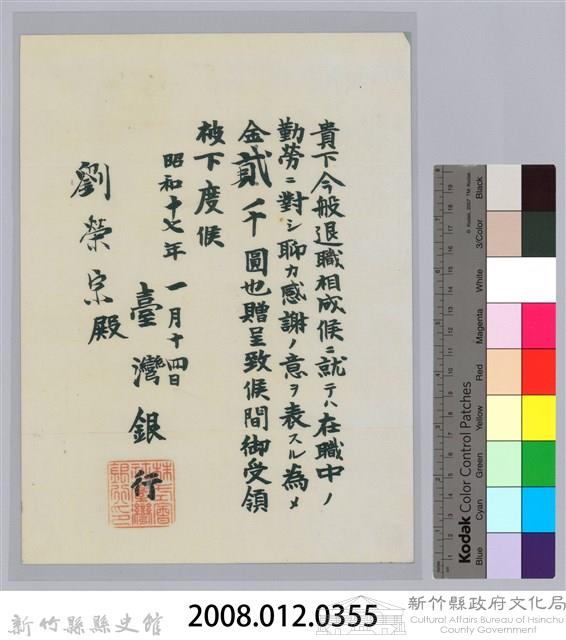 貴下今般退職相成候ニ就テハ在職中ノ
勤勞ニ對シ聊カ感謝ノ意ヲ表スル為メ
金貳千圓也贈呈致候間御受領
被下度候
昭和十七年一月十四日
臺灣銀行
劉榮宗殿
Kodak Color Control Patches
© Kodak, 2007 TM: Kodak
Blue
Cyan
Green
Yellow
Red
Magenta
White
3/Color
Black
新竹縣縣史館
2008.012.0355
新竹縣政府文化局
Cultural Affairs Bureau of Hsinchu
County Government